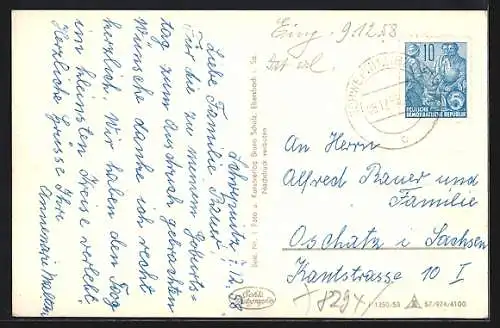 Eing. 9.12.58
10
DEUTSCHE
DEMOKRATISCHE REPUBLIK
Schwepnitz, 7.12.58
Liebe Familie Bauer!
Für die zu meinem Geburts=
tag zum Ausdruck gebrachten
Wünsche danke ich recht
herzlich. Wir haben den Tag
im kleinsten Kreise verlebt.
Herzliche Grüsse Ihre
Annemarie
Best. Nr. 1 Foto u. Kunstverlag Bruno Scholz, Ebersbach / Sa.
Nachdruck verboten
An Herrn
Alfred Bauer und
Familie
Oschatz i. Sachsen
Kantstrasse 10 I
8294
57/974/4100